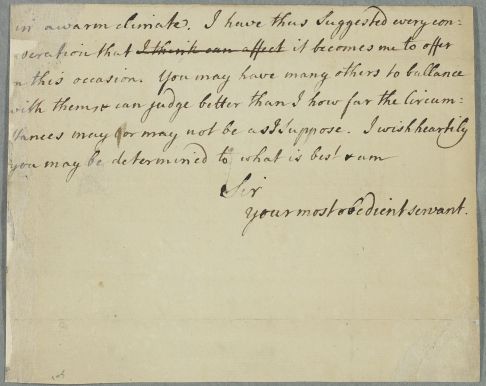 in a warm climate. I have thus Suggested every con:
:deration that I think can affect it becomes me to offer
on this occasion. You may have many others to ballance
with them, & can judge better than I how far the Circum-
stances may or may not be as I suppose. I wish heartily
you may be determined to what is best & am
Sir
your most obedient servant.